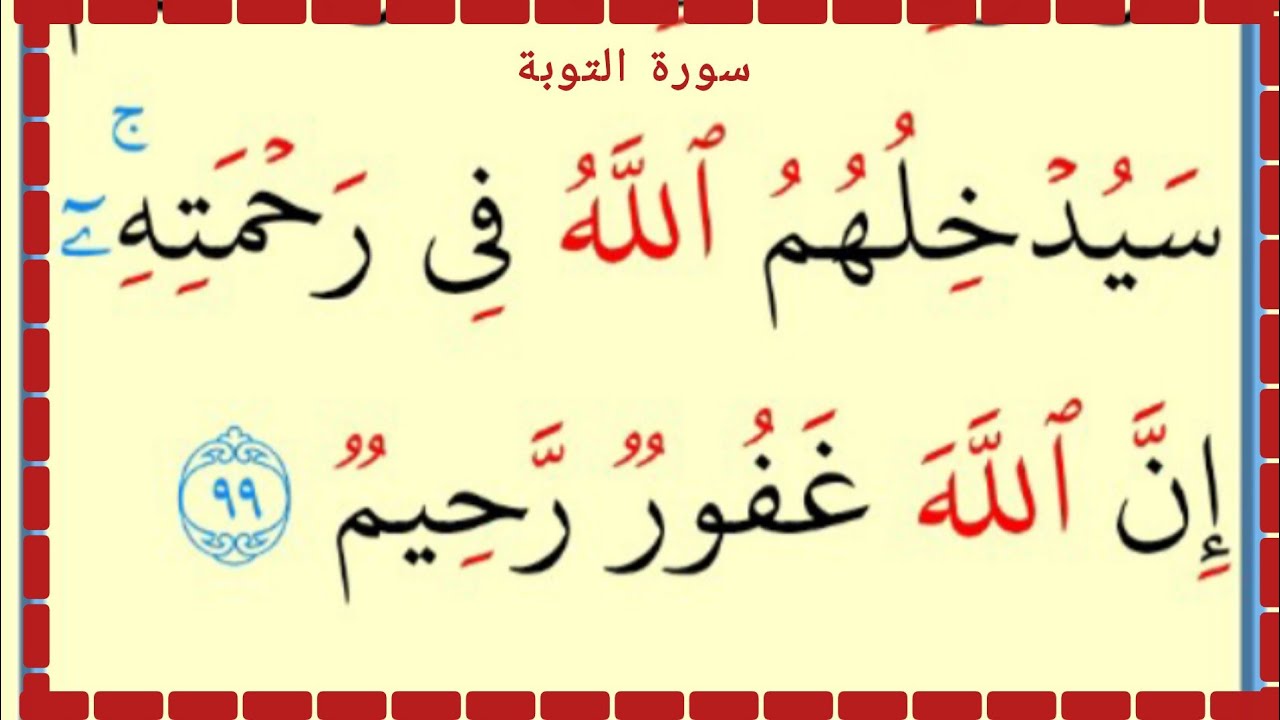 سورة التوبة
سَيُدۡخِلُهُمُ ٱللَّهُ فِي رَحۡمَتِهِۦٓۚ
إِنَّ ٱللَّهَ غَفُورٞ رَّحِيمٞ ٩٩